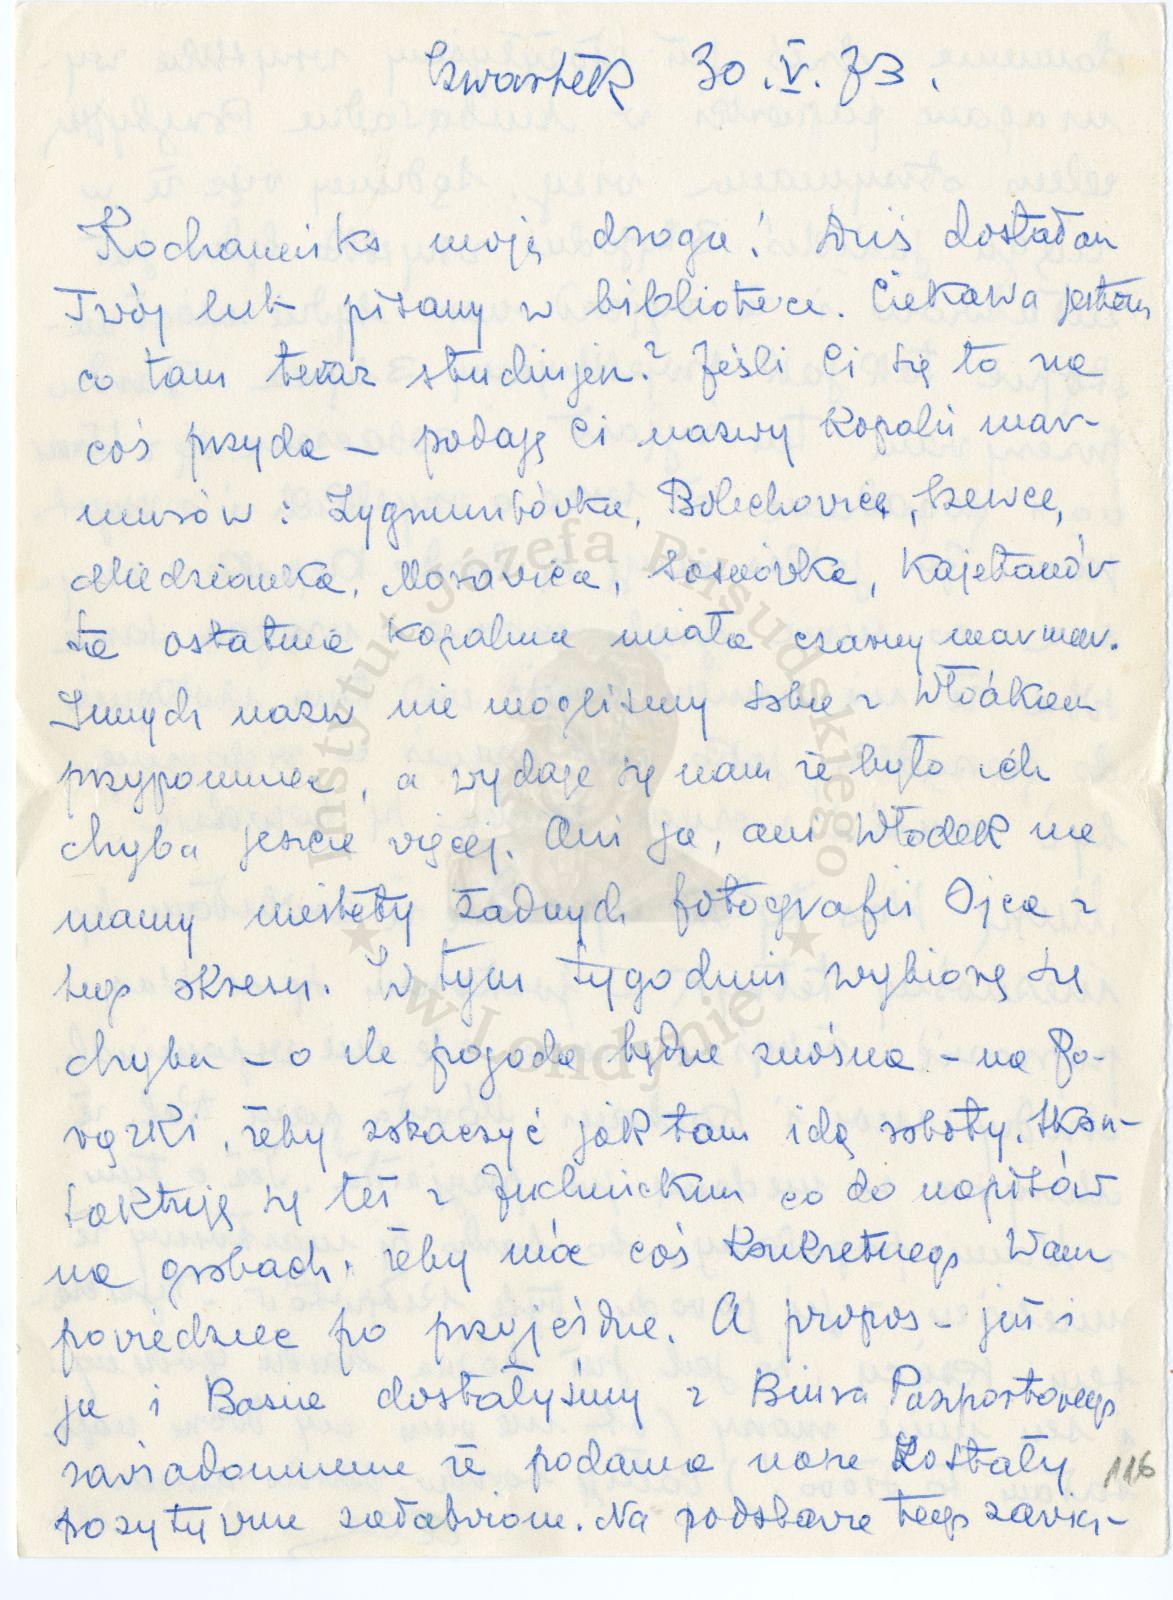 Czwartek 30.V.73.
Kochaneńka moja droga! Dziś dostałam
Twój list pisany w bibliotece. Ciekawa jestem
co tam teraz studiujesz? Jeśli Ci się to na
coś przyda – podaję Ci nazwy kopalń mar-
murów: Zygmuntówka, Bolechowice, Szewce,
Miedzianka, Morawica, Sosnówka, Kajetanów
ta ostatnia kopalnia miała czarny marmur.
Innych nazw nie mogliśmy sobie z Włodkiem
przypomnieć, a wydaje się nam że było ich
chyba jeszcze więcej. Ani ja, ani Włodek nie
mamy niestety żadnych fotografii Ojca z
tego okresu. W tym tygodniu wybiorę się
chyba – o ile pogoda będzie znośna – na Po-
wązki, żeby zobaczyć jak tam idą roboty. Skon-
taktuję się też z co do napisów
na grobach, żeby móc coś konkretnego Wam
powiedzieć po przyjeździe. A propos – już i
ja i Basia dostałyśmy z Biura Paszportowego
zawiadomienie że podania nasze zostały
pozytywnie załatwione. Na podstawie tego zawia-
116
Instytut Józefa Piłsudskiego
w Londynie